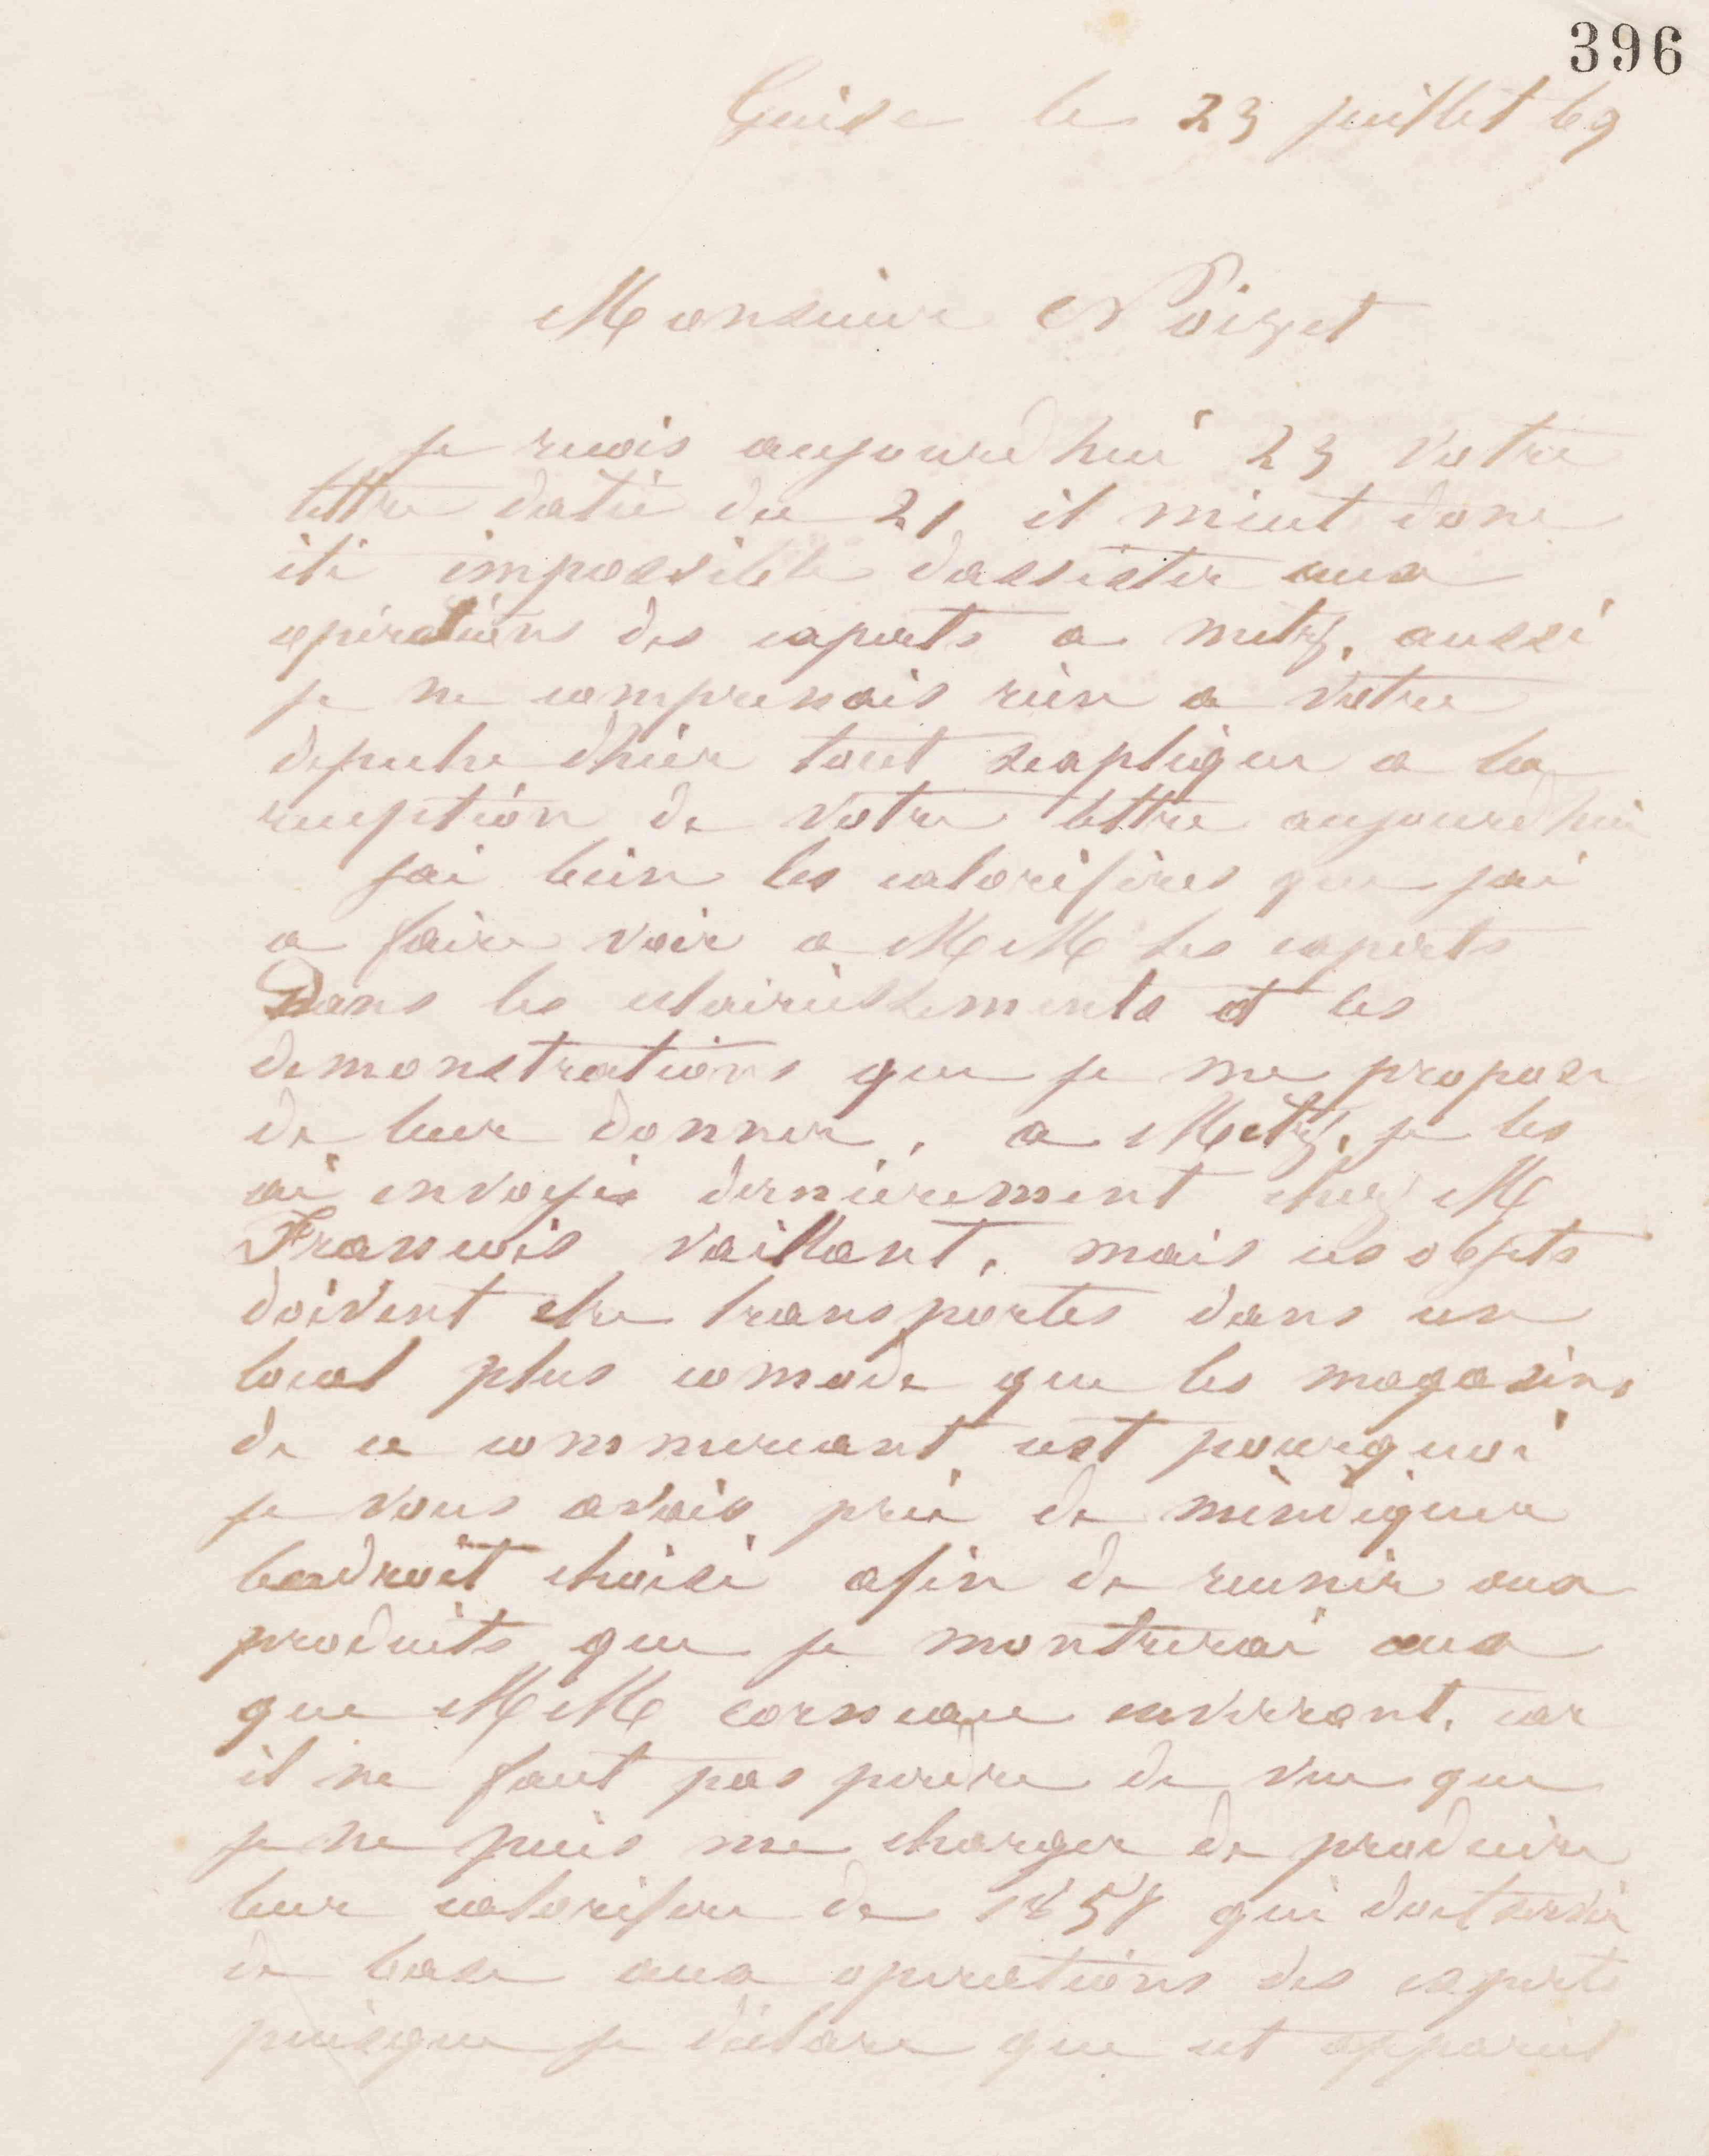 396
Guise le 23 juillet 69
Monsieur Noizet
je recois aujourdhui 23 votre
lettre datée du 21, il meut donc
été impossible dassister aux
opérations des experts a metz, aussi
je ne comprenais rien a votre
depeche dhier tout sexplique a la
reception de votre lettre aujourdhui
jai bien les calorifères que jai
a faire voir a MM les experts
Dans les eclaircissements et les
demonstrations que je me propose
de leur donner, a Metz, je les
ai envoyés dernièrement chez M
Francois vaillant, mais ces objets
doivent etre transportes dans un
local plus comode que les magasins
de ce commercant cest pourquoi
je vous avais prié de mindiquer
lendroit choisi afin de reunir aux
produits que je montrerai ceux
que MM corneau enverront, car
il ne faut pas perdre de vue que
je ne puis me charger de produire
leur calorifere de 1858 qui doit servir
de base aux operations des experts
puisque je déclare que cet appareil